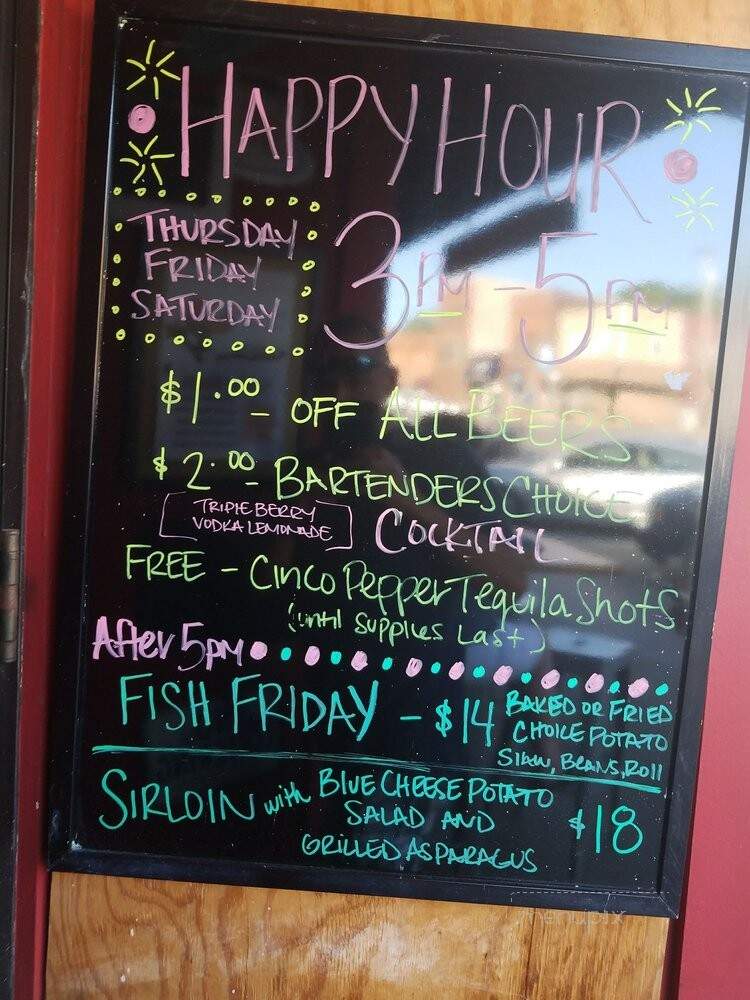 HAPPY HOUR
THURSDAY
FRIDAY
SATURDAY
3PM - 5PM
$1.00 - OFF ALL BEERS
$2.00 - BARTENDERS CHOICE
[TRIPLE BERRY
VODKA LEMONADE]
COCKTAIL
FREE - Cinco Pepper Tequila Shots
(until supplies Last)
After 5pm
FISH FRIDAY - $14
BAKED OR FRIED
CHOICE POTATO
SlAW, BEANS, ROll
SIRLOIN with BLUE CHEESE POTATO
SALAD AND
GRILLED ASPARAGUS
$18
menupix